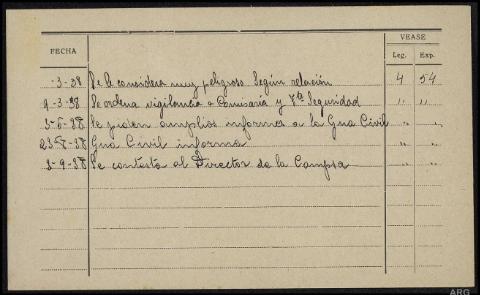 VEASE
FECHA Leg. Exp.
-3-38 Se le considera muy peligroso según relación 4 54
9-3-38 Se ordena vigilancia a Comisaria y 7ª Seguridad " "
3-6-38 Se piden amplios informes a la Gua Civil " "
23-8-38 Gua Civil informa " "
3-9-38 Se contesta al Director de la Campsa " "
ARG